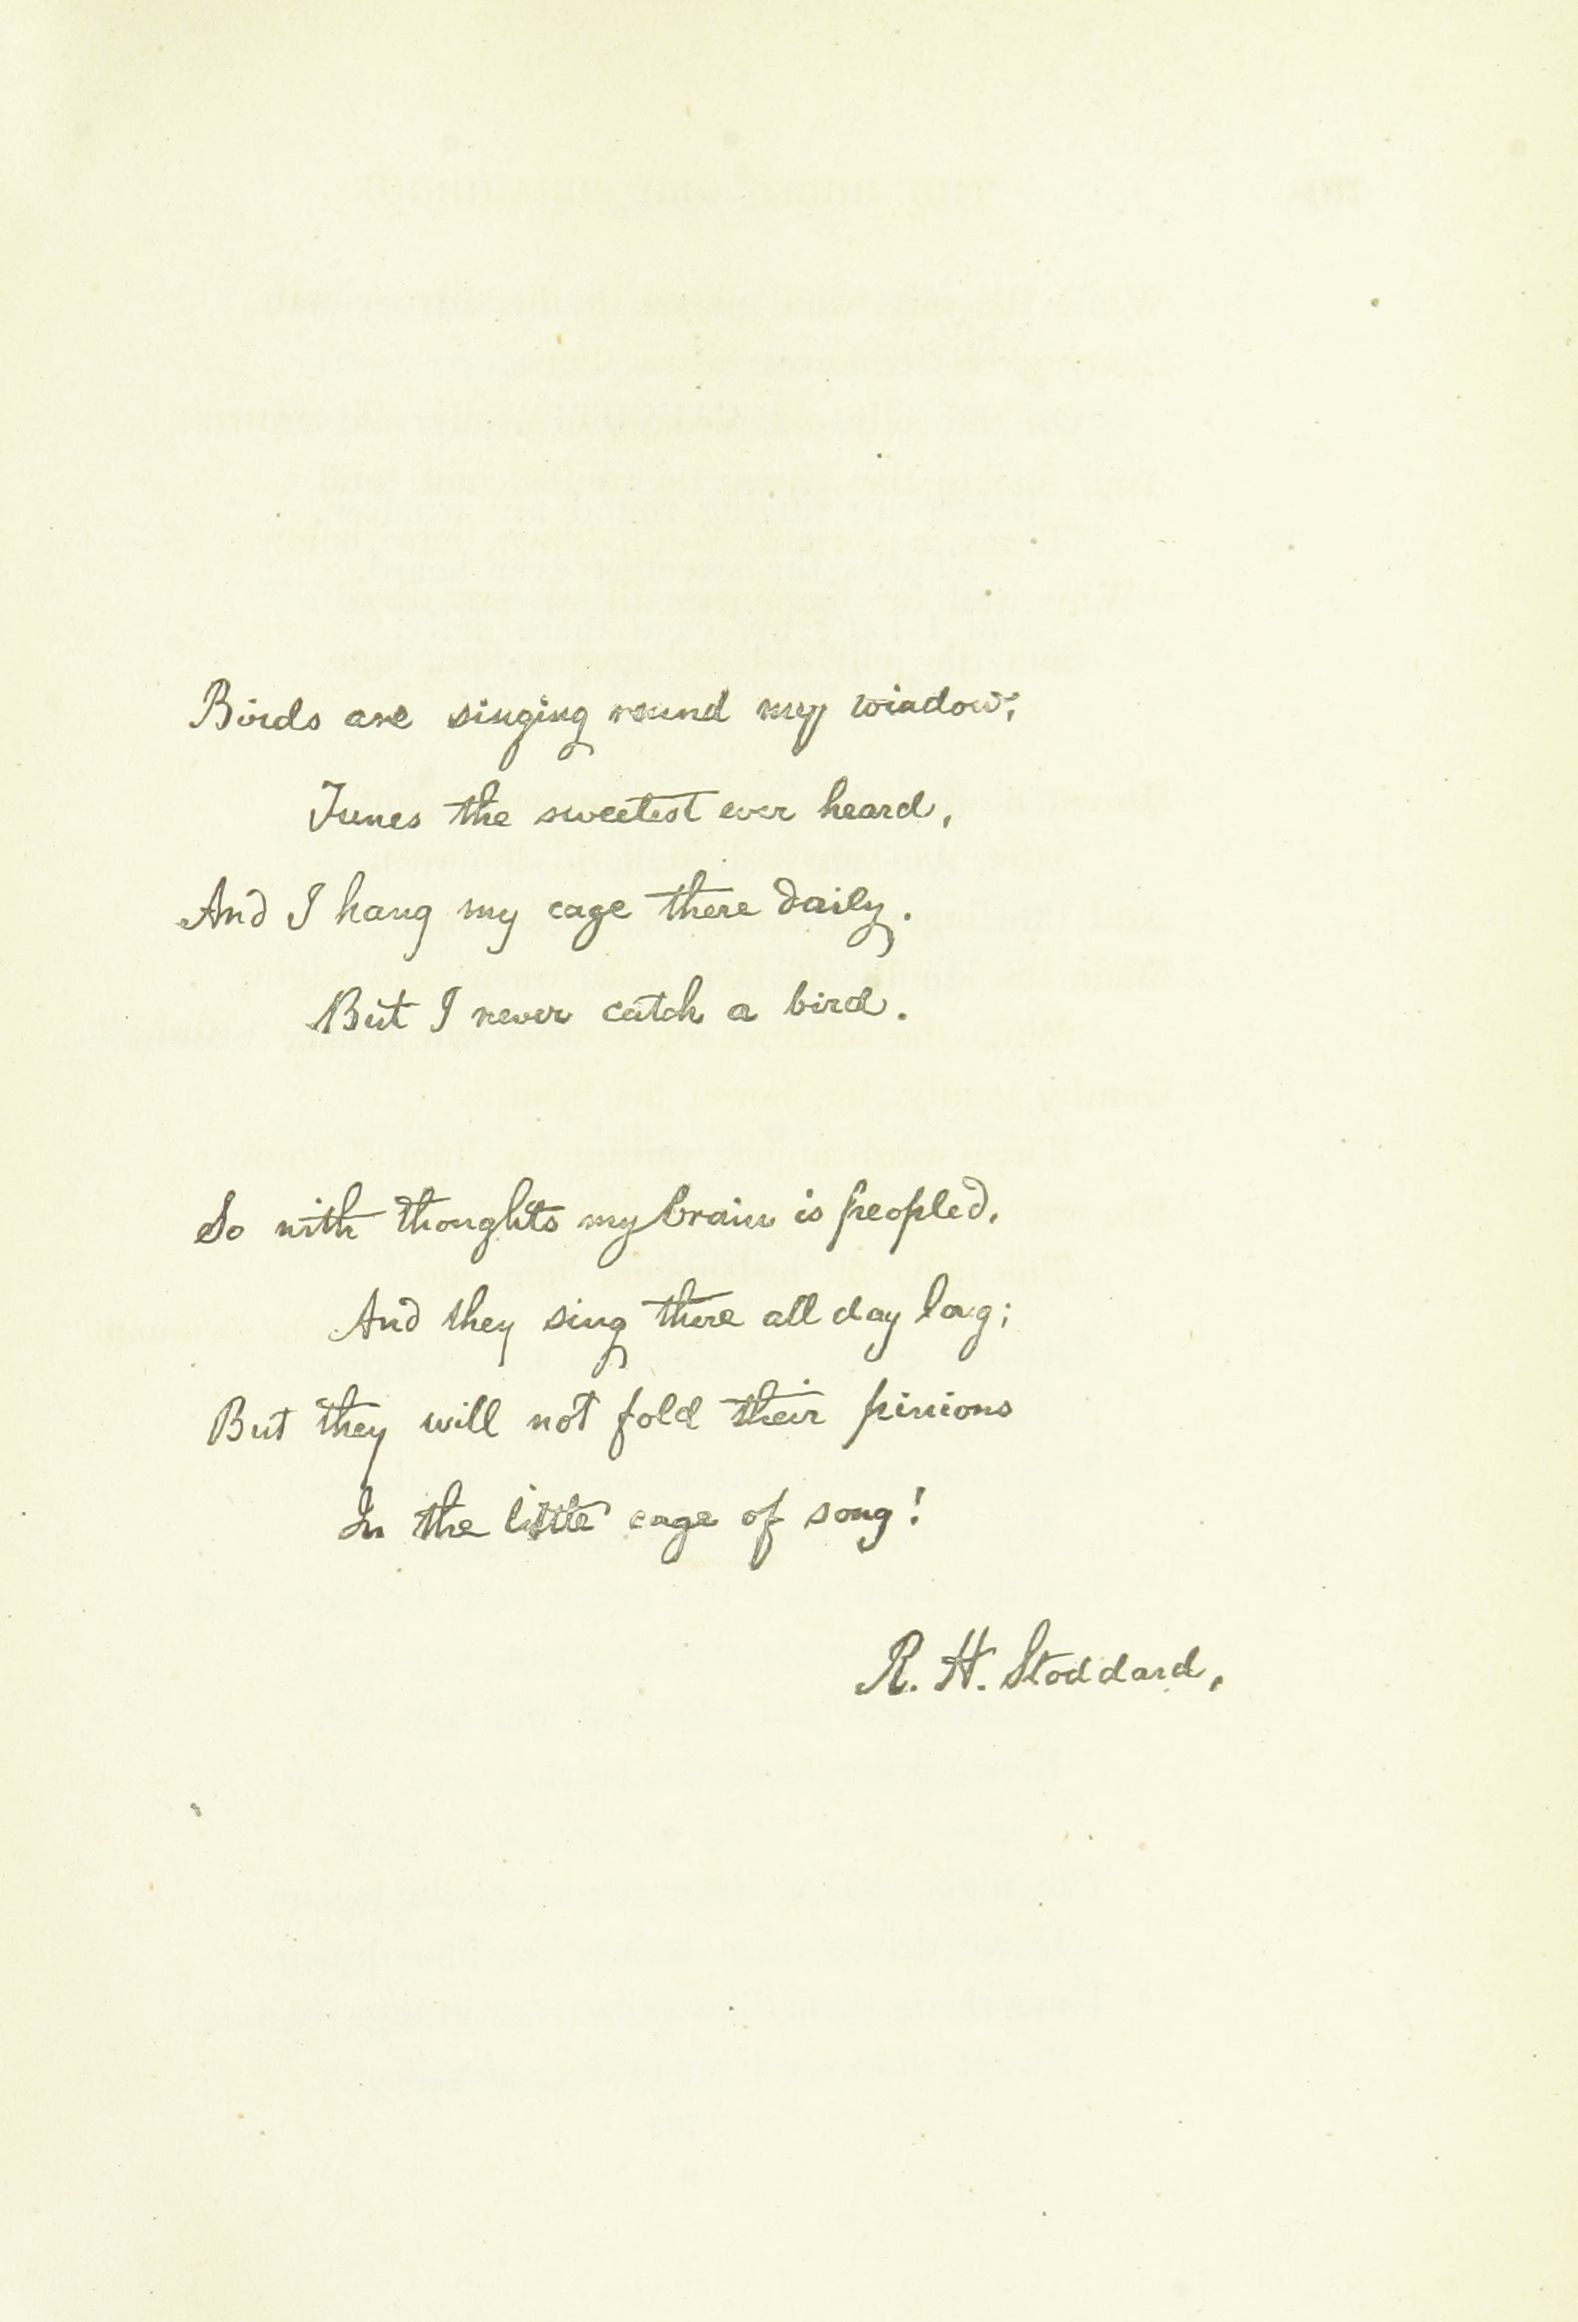 Birds are singing round my window,
Tunes the sweetest ever heard,
And I hang my cage there daily.
But I never catch a bird.
So with thoughts my brain is peopled,
And they sing there all day long;
But they will not fold their pinions
In the little cage of song!
R. H. Stoddard,